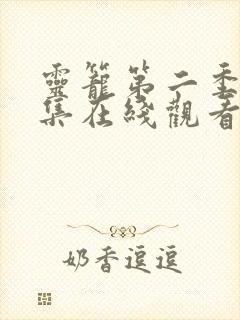 靈籠第二季
集在綫觀看
奶香逗逗